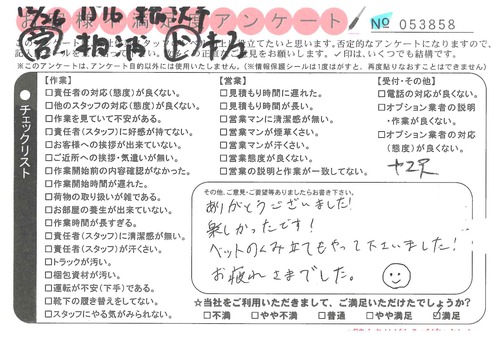 お客様満足度アンケート № 053858
※このアンケートは、アンケート目的以外には使用いたしません。(※情報保護シールは1度はがすと、再度貼りなおすことはできません)
チェックリスト
【作業】
□責任者の対応(態度)が良くない。
□他のスタッフの対応(態度)が良くない。
□作業を見ていて不安がある。
□責任者(スタッフ)に好感が持てない。
□お客様への挨拶が出来ていない。
□ご近所への挨拶・気遣いが無い。
□作業開始前の内容確認がなかった。
□作業開始時間が遅れた。
□荷物の取り扱いが雑である。
□お部屋の養生が出来ていない。
□作業時間が長すぎる。
□責任者(スタッフ)に清潔感が無い。
□責任者(スタッフ)が汗くさい。
□トラックが汚い。
□梱包資材が汚い。
□運転が不安(下手)である。
□靴下の履き替えをしてない。
□スタッフにやる気がみられない。
【営業】
□見積もり時間に遅れた。
□見積もり時間が長い。
□営業マンに清潔感が無い。
□営業マンが煙草くさい。
□営業マンが汗くさい。
□営業態度が良くない。
□営業の説明と作業が一致してない。
【受付・その他】
□電話の対応が良くない。
□オプション業者の説明
・作業が良くない。
□オプション業者の対応
(態度)が良くない。
その他、ご意見・ご要望等ありましたらお書き下さい。
ありがとうございました!
楽しかったです!
ベットのくみ立てもやって下さいました!
お疲れさまでした。
☆当社をご利用いただきまして、ご満足いただけたでしょうか?
□不満 □やや不満 □普通 □やや満足 ☑満足